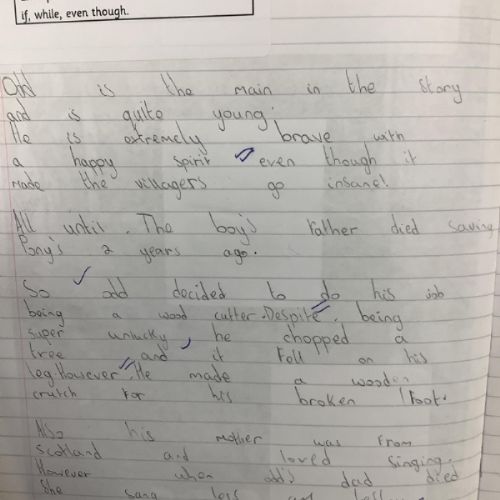 if, while, even though.
Odd is the main in the story
and is quite young.
He is extremely brave with
a happy spirit even though it
made the villagers go insane!
All until. The boy's father died saving
Pony's 2 years ago.
So odd decided to do his job
being a wood cutter. Despite, being
super unlucky, he chopped a
tree and it fell on his
leg. However, He made a wooden
crutch for his broken foot.
Also his mother was from
scotland and loved singing.
However when odd's dad died
She sang less and less